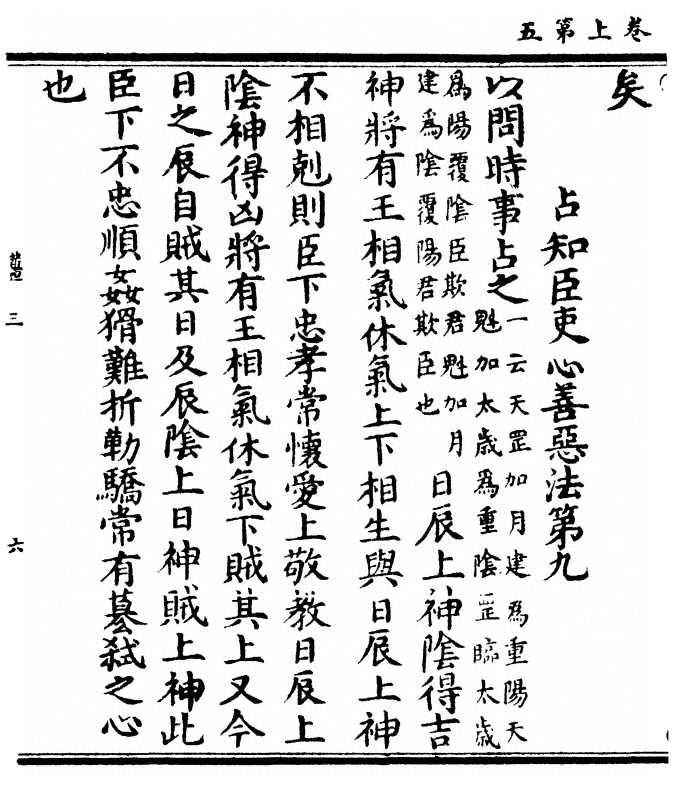 卷上第五
矣
占知臣吏心善惡法第九
以問時事占之
一云天罡加月建為重陽天
魁加太歲為重陰罡臨太歲
為陽覆陰臣欺君魁加月
建為陰覆陽君欺臣也
日辰上神陰得吉
神將有王相氣休氣上下相生與日辰上神
不相剋則臣下忠孝常懷愛上敬教日辰上
陰神得凶將有王相氣休氣下賊其上又今
日之辰自賊其日及辰陰上日神賊上神此
臣下不忠順姦猾難折勒驕常有篡弒之心
也
三
六